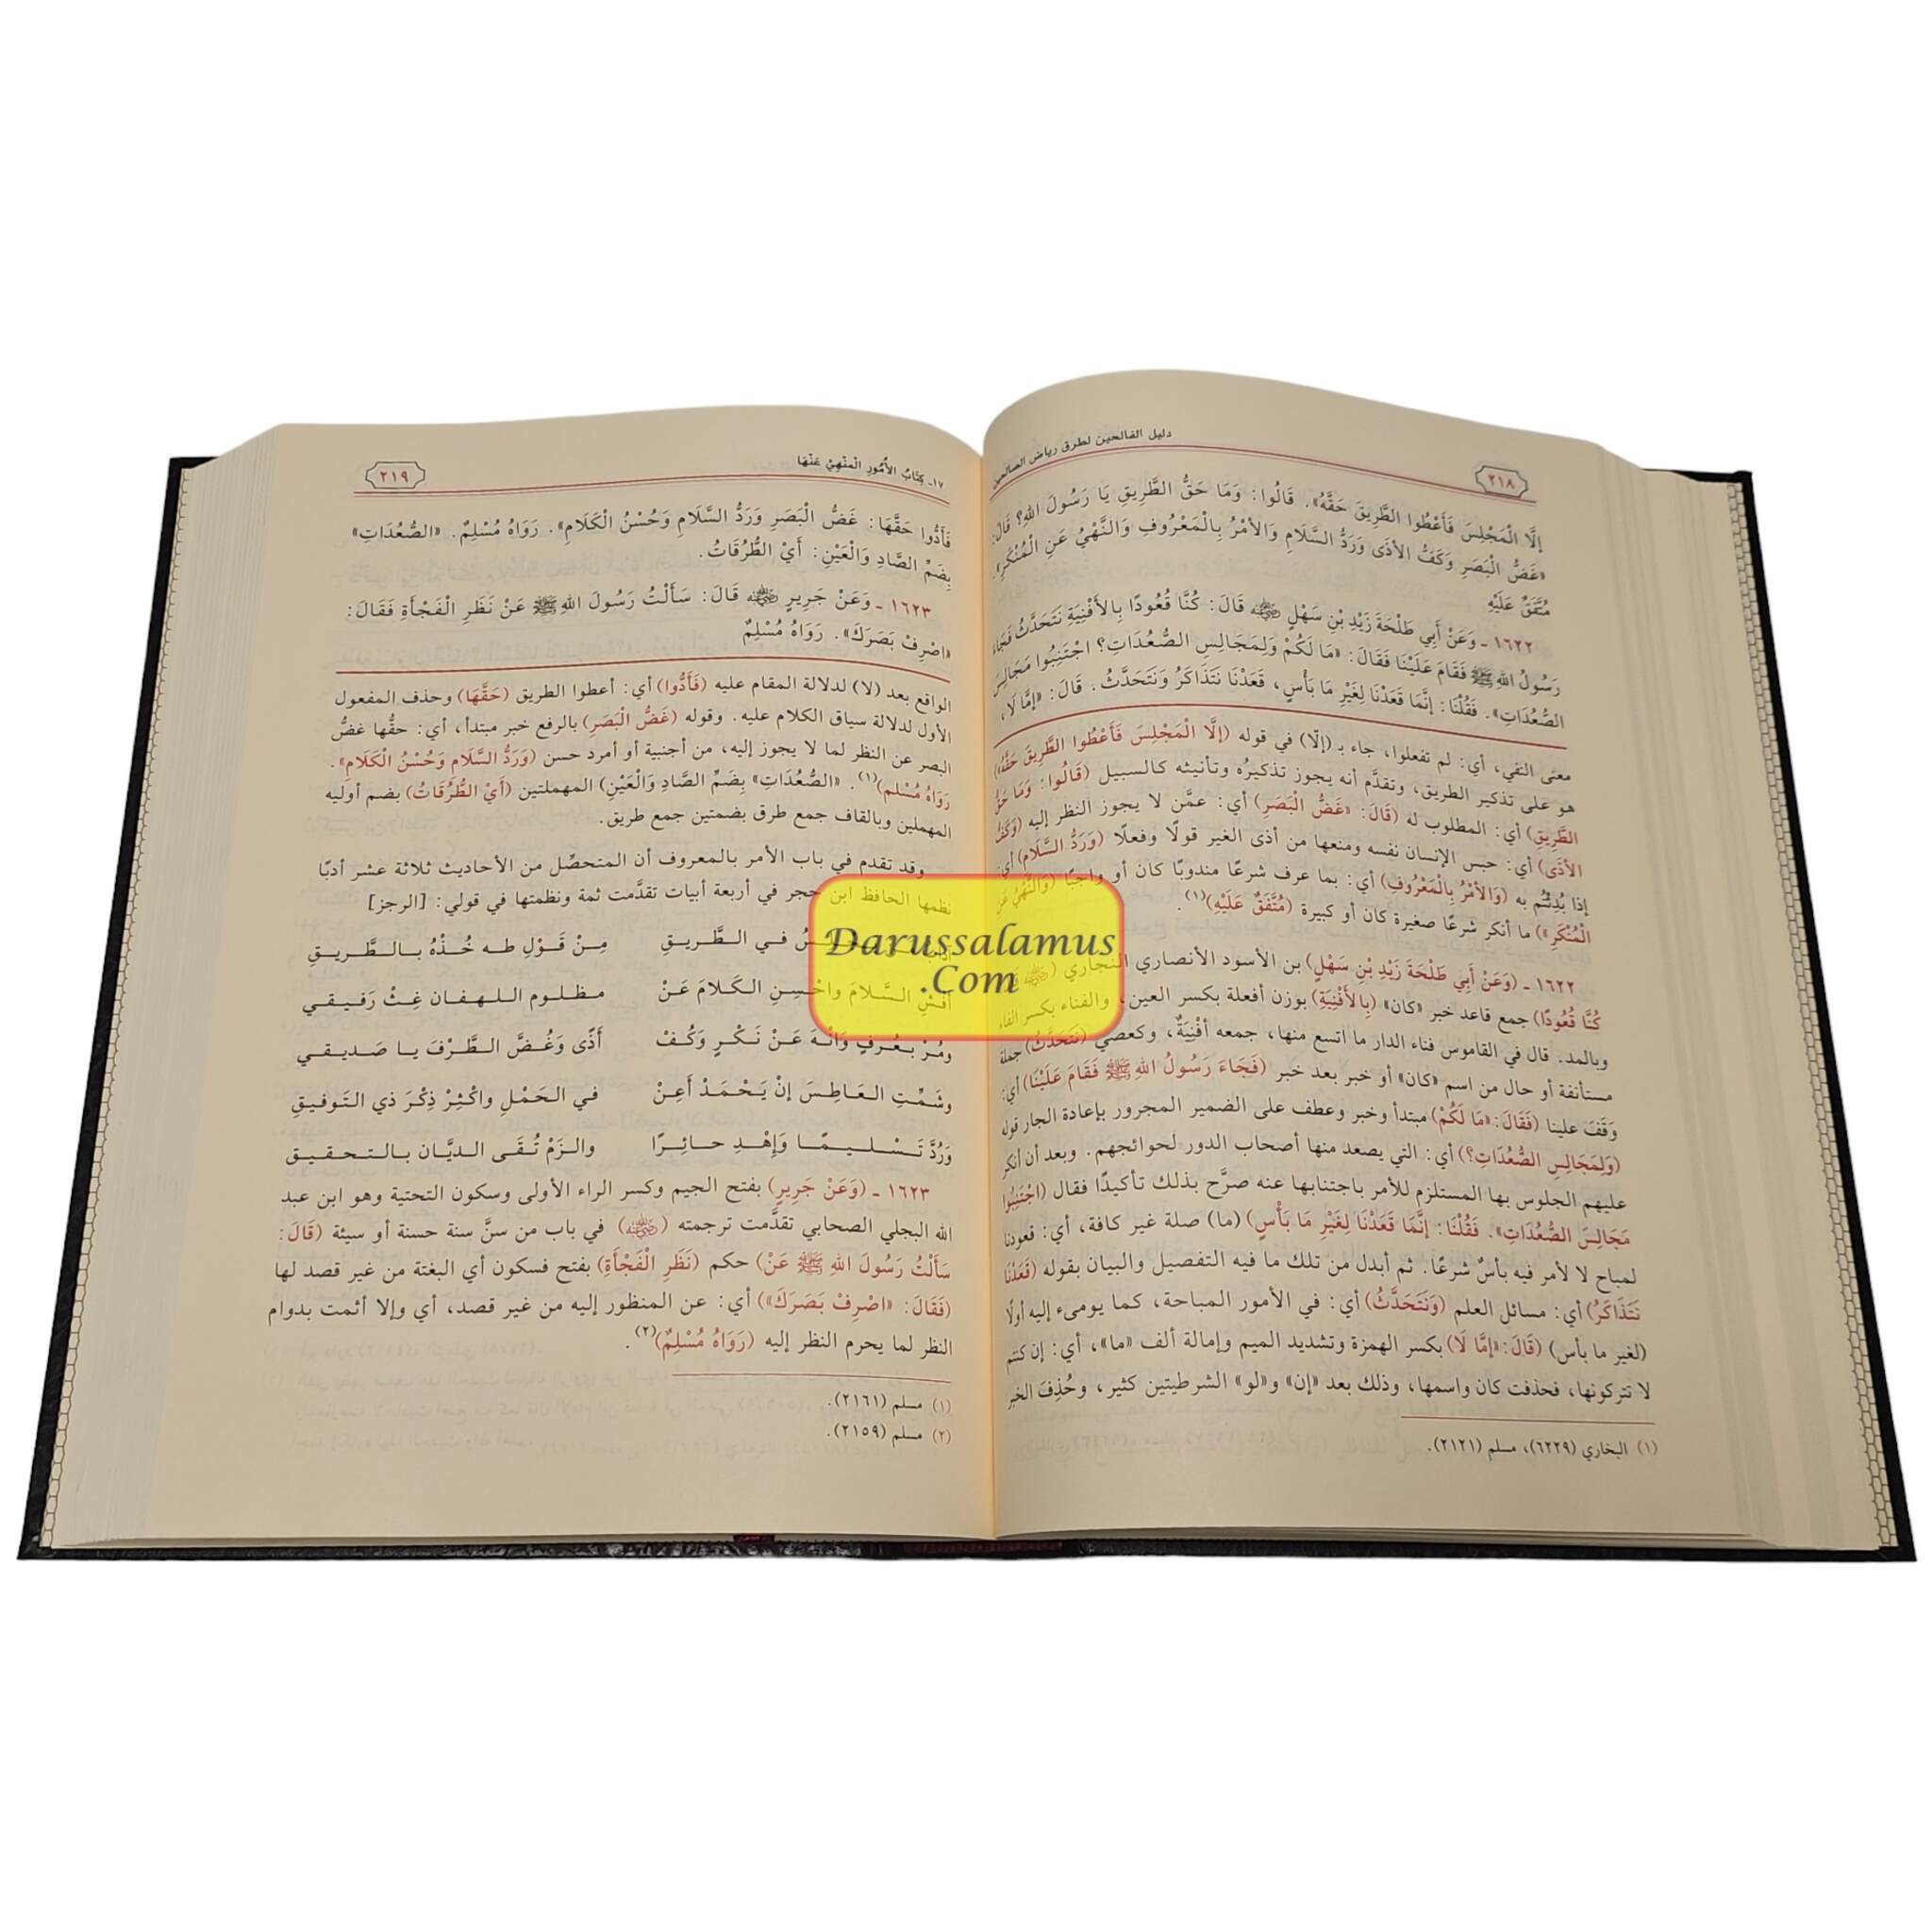 دليل الفالحين لطرق رياض الصالحين
٢١٨
إلَّا الْمَجْلِسَ فَأَعْطُوا الطَّرِيقَ حَقَّهُ». قَالُوا: وَمَا حَقُّ الطَّرِيقِ يَا رَسُولَ اللهِ؟ قَالَ:
«غَضُّ الْبَصَرِ وَكَفُّ الأذَى وَرَدُّ السَّلَامِ وَالأمْرُ بِالْمَعْرُوفِ وَالنَّهْيُ عَنِ الْمُنْكَرِ».
مُتَّفَقٌ عَلَيْهِ
١٦٢٢ ـ وَعَنْ أَبِي طَلْحَةَ زَيْدِ بْنِ سَهْلٍ رضي الله عنه قَالَ: كُنَّا قُعُودًا بِالأَفْنِيَةِ نَتَحَدَّثُ فَجَاءَ
رَسُولُ اللهِ ﷺ فَقَامَ عَلَيْنَا فَقَالَ: «مَا لَكُمْ وَلِمَجَالِسِ الصُّعُدَاتِ؟ اجْتَنِبُوا مَجَالِسَ
الصُّعُدَاتِ». فَقُلْنَا: إنَّمَا قَعَدْنَا لِغَيْرِ مَا بَأْسٍ، قَعَدْنَا نَتَذَاكَرُ وَنَتَحَدَّثُ. قَالَ: «إمَّا لَا،
معنى النفي، أي: لم تفعلوا، جاء بـ (إلّا) في قوله (إلَّا الْمَجْلِسَ فَأَعْطُوا الطَّرِيقَ حَقَّهُ)
هو على تذكير الطريق، وتقدَّم أنه يجوز تذكيرُه وتأنيثه كالسبيل (قَالُوا: وَمَا حَقُّ
الطَّرِيقِ) أي: المطلوب له (قَالَ: «غَضُّ الْبَصَرِ) أي: عمَّن لا يجوز النظر إليه (وَكَفُّ
الأذَى) أي: حبس الإنسان نفسه ومنعها من أذى الغير قولًا وفعلًا (وَرَدُّ السَّلَامِ) أي:
إذا بُدِئْتُم به (وَالأمْرُ بِالْمَعْرُوفِ) أي: بما عرف شرعًا مندوبًا كان أو واجبًا (وَالنَّهْيُ عَنِ
الْمُنْكَرِ») ما أنكر شرعًا صغيرة كان أو كبيرة (مُتَّفَقٌ عَلَيْهِ)(١).
١٦٢٢ ـ (وَعَنْ أَبِي طَلْحَةَ زَيْدِ بْنِ سَهْلٍ) بن الأسود الأنصاري النجاري
كُنَّا قُعُودًا) جمع قاعد خبر «كان» (بِالأَفْنِيَةِ) بوزن أفعلة بكسر العين، والفناء بكسر الفاء
وبالمد. قال في القاموس فناء الدار ما اتسع منها، جمعه أفْنِيَةٌ، وكعصي (نَتَحَدَّثُ) جملة
مستأنفة أو حال من اسم «كان» أو خبر بعد خبر (فَجَاءَ رَسُولُ اللهِ ﷺ فَقَامَ عَلَيْنَا) أي:
وَقَفَ علينا (فَقَالَ: «مَا لَكُمْ) مبتدأ وخبر وعطف على الضمير المجرور بإعادة الجار قوله
(وَلِمَجَالِسِ الصُّعُدَاتِ؟) أي: التي يصعد منها أصحاب الدور لحوائجهم. وبعد أن أنكر
عليهم الجلوس بها المستلزم للأمر باجتنابها عنه صرَّح بذلك تأكيدًا فقال (اجْتَنِبُوا
مَجَالِسَ الصُّعُدَاتِ». فَقُلْنَا: إنَّمَا قَعَدْنَا لِغَيْرِ مَا بَأْسٍ) (ما) صلة غير كافة، أي: قعودنا
لمباح لا لأمر فيه بأسٌ شرعًا. ثم أبدل من تلك ما فيه التفصيل والبيان بقوله (قَعَدْنَا
نَتَذَاكَرُ) أي: مسائل العلم (وَنَتَحَدَّثُ) أي: في الأمور المباحة، كما يومىء إليه أولًا
(لغير ما بأس) (قَالَ: «إمَّا لَا) بكسر الهمزة وتشديد الميم وإمالة ألف «ما»، أي: إن كنتم
لا تتركونها، فحذفت كان واسمها، وذلك بعد «إن» و«لو» الشرطيتين كثير، وحُذِفَ الخبر
(١) البخاري (٦٢٢٩)، مسلم (٢١٢١).
١٧ـ كِتَابُ الأُمُورِ الْمَنْهِيِّ عَنْهَا
٢١٩
فَأَدُّوا حَقَّهَا: غَضُّ الْبَصَرِ وَرَدُّ السَّلَامِ وَحُسْنُ الْكَلَامِ». رَوَاهُ مُسْلِمٌ. «الصُّعُدَاتِ»
بِضَمِّ الصَّادِ وَالْعَيْنِ: أَيْ الطُّرُقَاتُ.
١٦٢٣ ـ وَعَنْ جَرِيرٍ رضي الله عنه قَالَ: سَأَلْتُ رَسُولَ اللهِ ﷺ عَنْ نَظَرِ الْفَجْأَةِ فَقَالَ:
«اصْرِفْ بَصَرَكَ». رَوَاهُ مُسْلِمٌ
الواقع بعد (لا) لدلالة المقام عليه (فَأَدُّوا) أي: أعطوا الطريق (حَقَّهَا) وحذف المفعول
الأول لدلالة سياق الكلام عليه. وقوله (غَضُّ الْبَصَرِ) بالرفع خبر مبتدأ، أي: حقُّها غضُّ
البصر عن النظر لما لا يجوز إليه، من أجنبية أو أمرد حسن (وَرَدُّ السَّلَامِ وَحُسْنُ الْكَلَامِ».
رَوَاهُ مُسْلم)(١). «الصُّعُدَاتِ» بِضَمِّ الصَّادِ وَالْعَيْنِ) المهملتين (أَيْ الطُّرُقَاتُ) بضم أوليه
المهملين وبالقاف جمع طرق بضمتين جمع طريق.
وقد تقدم في باب الأمر بالمعروف أن المتحصِّل من الأحاديث ثلاثة عشر أدبًا
نظمها الحافظ ابن حجر في أربعة أبيات تقدَّمت ثمة ونظمتها في قولي: [الرجز]
في الطَّريقِ مِنْ قَوْلِ طه خُذْهُ بالطَّريقِ
أفْشِ السَّلامَ واحْسِنِ الكَلامَ عَنْ مظلوم اللهفان غِثْ رَفيقي
ومُرْ بعُرفٍ وَانْهَ عَنْ نَكْرٍ وَكُفْ أَذًى وَغُضَّ الطَّرْفَ يا صَديقي
وشَمِّتِ العَاطِسَ إنْ يَحْمَدْ أَعِنْ في الحَمْلِ واكْثِرْ ذِكْرَ ذي التَوفيقِ
وَرُدَّ تَسْليمًا وَإهْدِ حائِرًا والزَمْ تُقَى الديَّان بالتحقيق
١٦٢٣ ـ (وَعَنْ جَرِيرٍ) بفتح الجيم وكسر الراء الأولى وسكون التحتية وهو ابن عبد
الله البجلي الصحابي تقدَّمت ترجمته (رضي الله عنه) في باب من سنَّ سنة حسنة أو سيئة (قَالَ:
سَأَلْتُ رَسُولَ اللهِ ﷺ عَنْ) حكم (نَظَرِ الْفَجْأَةِ) بفتح فسكون أي البغتة من غير قصد لها
(فَقَالَ: «اصْرِفْ بَصَرَكَ») أي: عن المنظور إليه من غير قصد، أي وإلا أثمت بدوام
النظر لما يحرم النظر إليه (رَوَاهُ مُسْلِمٌ)(٢).
(١) مسلم (٢١٦١).
(٢) مسلم (٢١٥٩).
Darussalamus
.Com